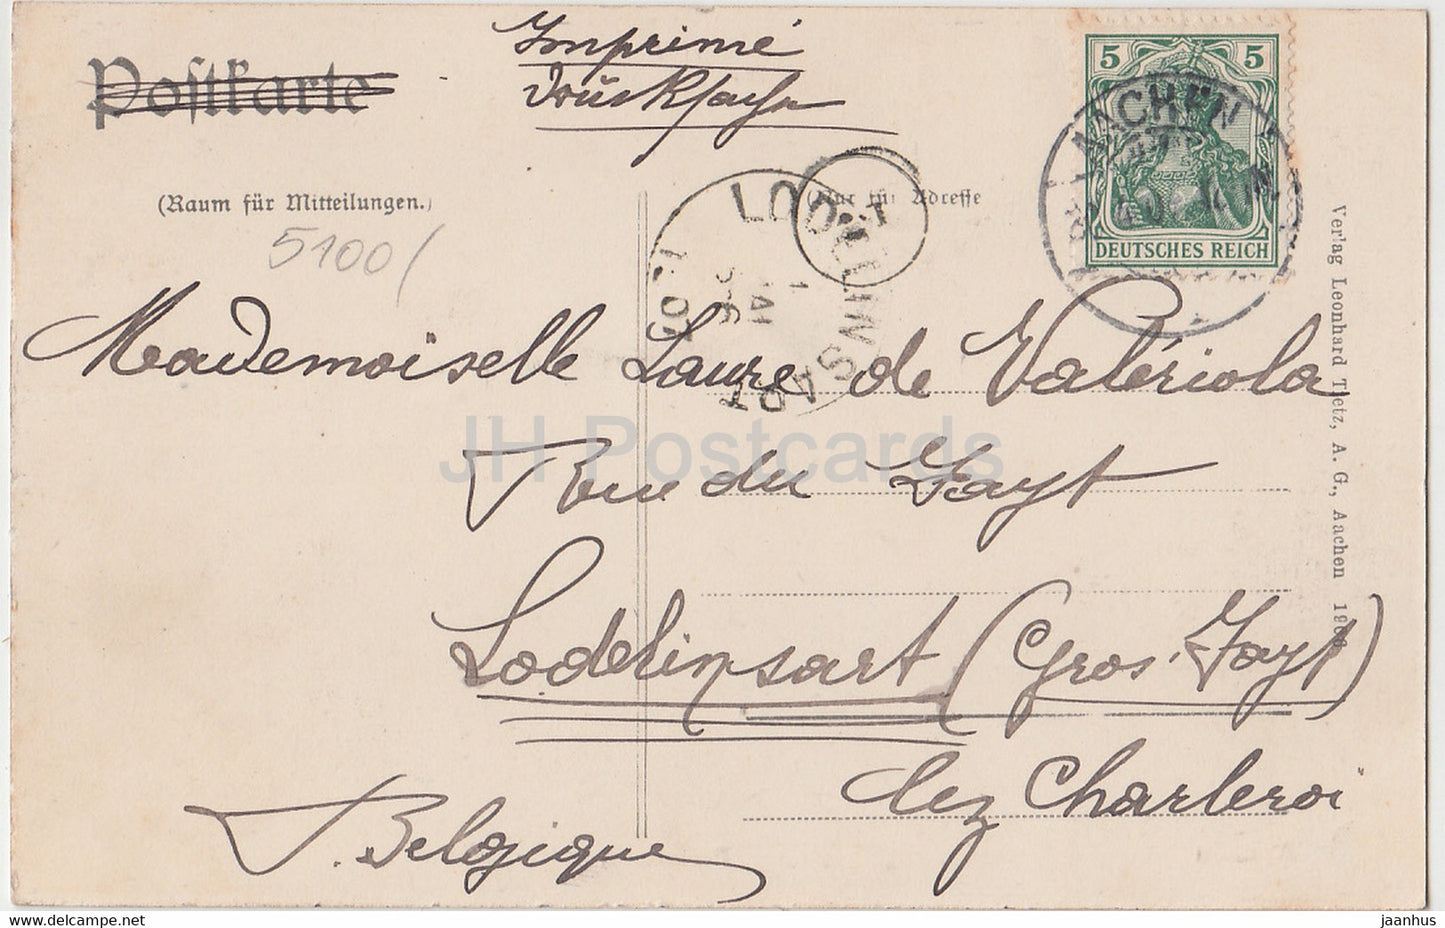 Imprimé
Drucksache
Postkarte
(Raum für Mitteilungen.)
(Nur für Adresse
5100/
5 5
DEUTSCHES REICH
AACHEN
LODELINSART
Mademoiselle Laure de Valériola
Rue du Gayt
Lodelinsart (Gros-Fayt)
lez Charleroi
Belgique
Verlag Leonhard Tietz, A. G., Aachen
JH Postcards
jaanhus